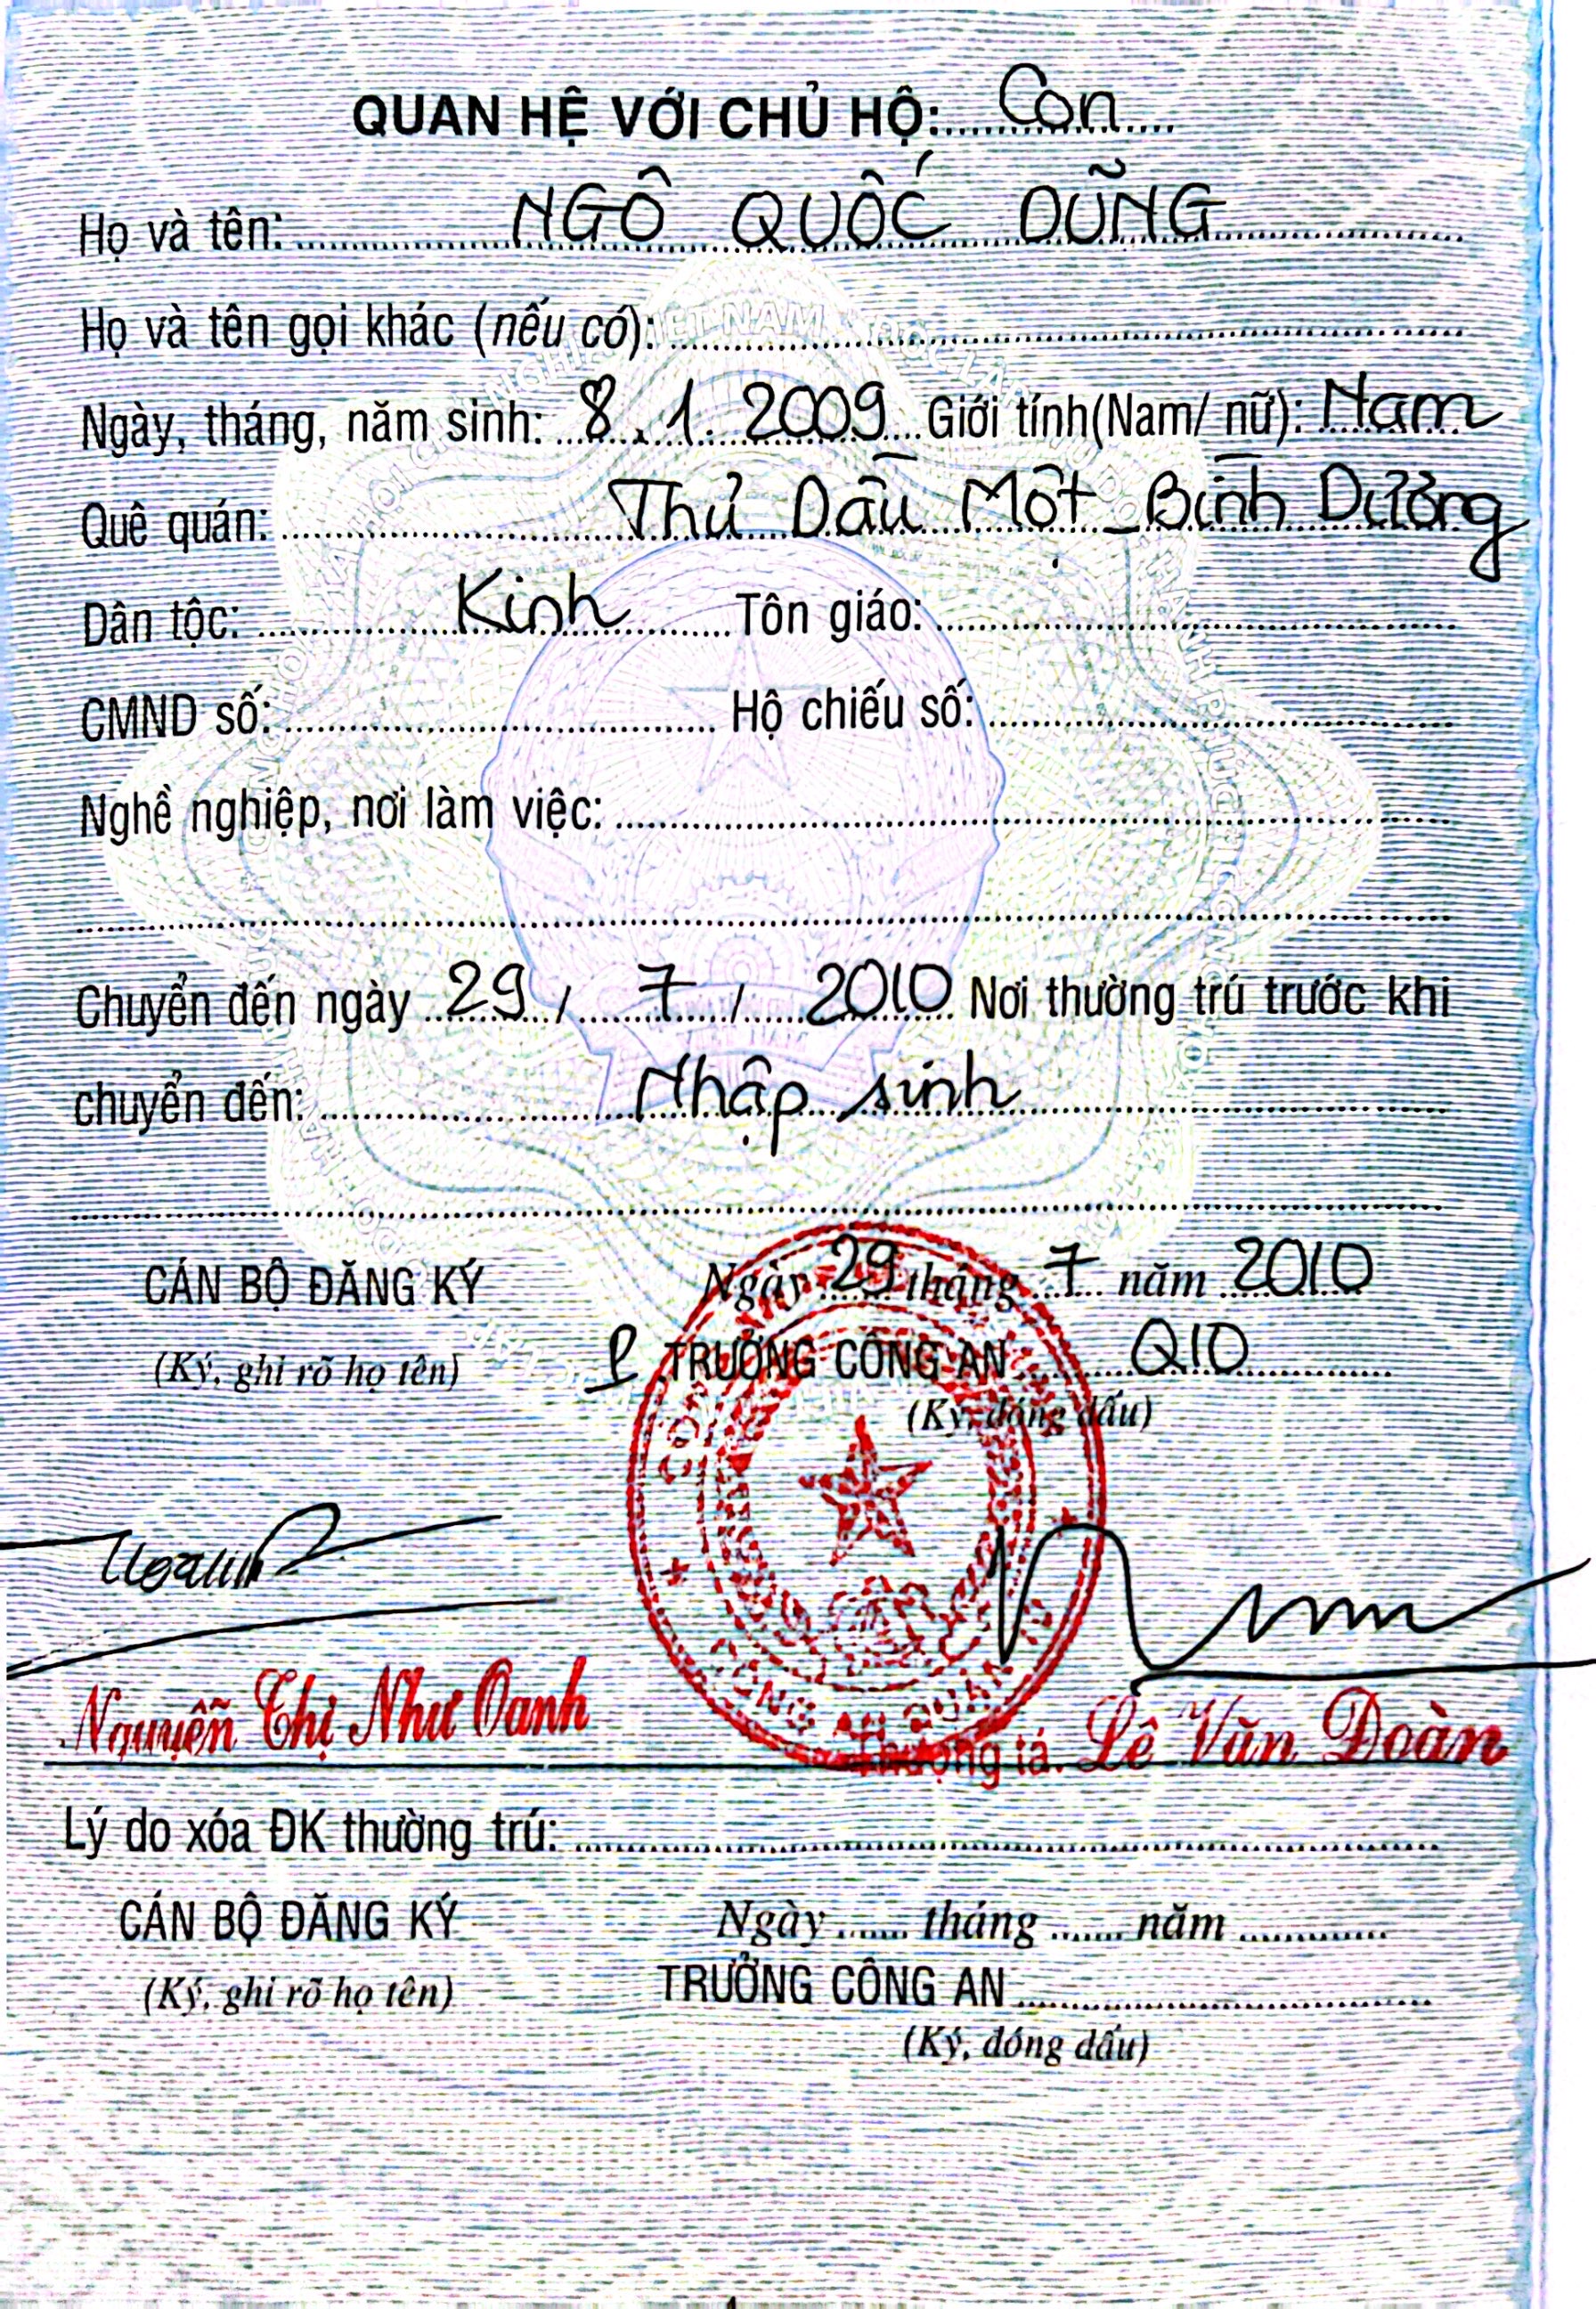 QUAN HỆ VỚI CHỦ HỘ: Con
Họ và tên: NGÔ QUỐC DŨNG
Họ và tên gọi khác (nếu có):
Ngày, tháng, năm sinh: 8.1.2009 Giới tính(Nam/ nữ): Nam
Quê quán: Thủ Dầu Một - Bình Dương
Dân tộc: Kinh Tôn giáo:
CMND số: Hộ chiếu số:
Nghề nghiệp, nơi làm việc:
Chuyển đến ngày 29 / 7 / 2010 Nơi thường trú trước khi
chuyển đến: Nhập sinh
CÁN BỘ ĐĂNG KÝ Ngày 29 tháng 7 năm 2010
(Ký, ghi rõ họ tên) P TRƯỞNG CÔNG AN Q10
(Ký, đóng dấu)
CÔNG AN QUẬN
Nguyễn Thị Như Oanh Thượng tá. Lê Văn Đoàn
Lý do xóa ĐK thường trú:
CÁN BỘ ĐĂNG KÝ Ngày ...... tháng ...... năm ............
(Ký, ghi rõ họ tên) TRƯỞNG CÔNG AN
(Ký, đóng dấu)